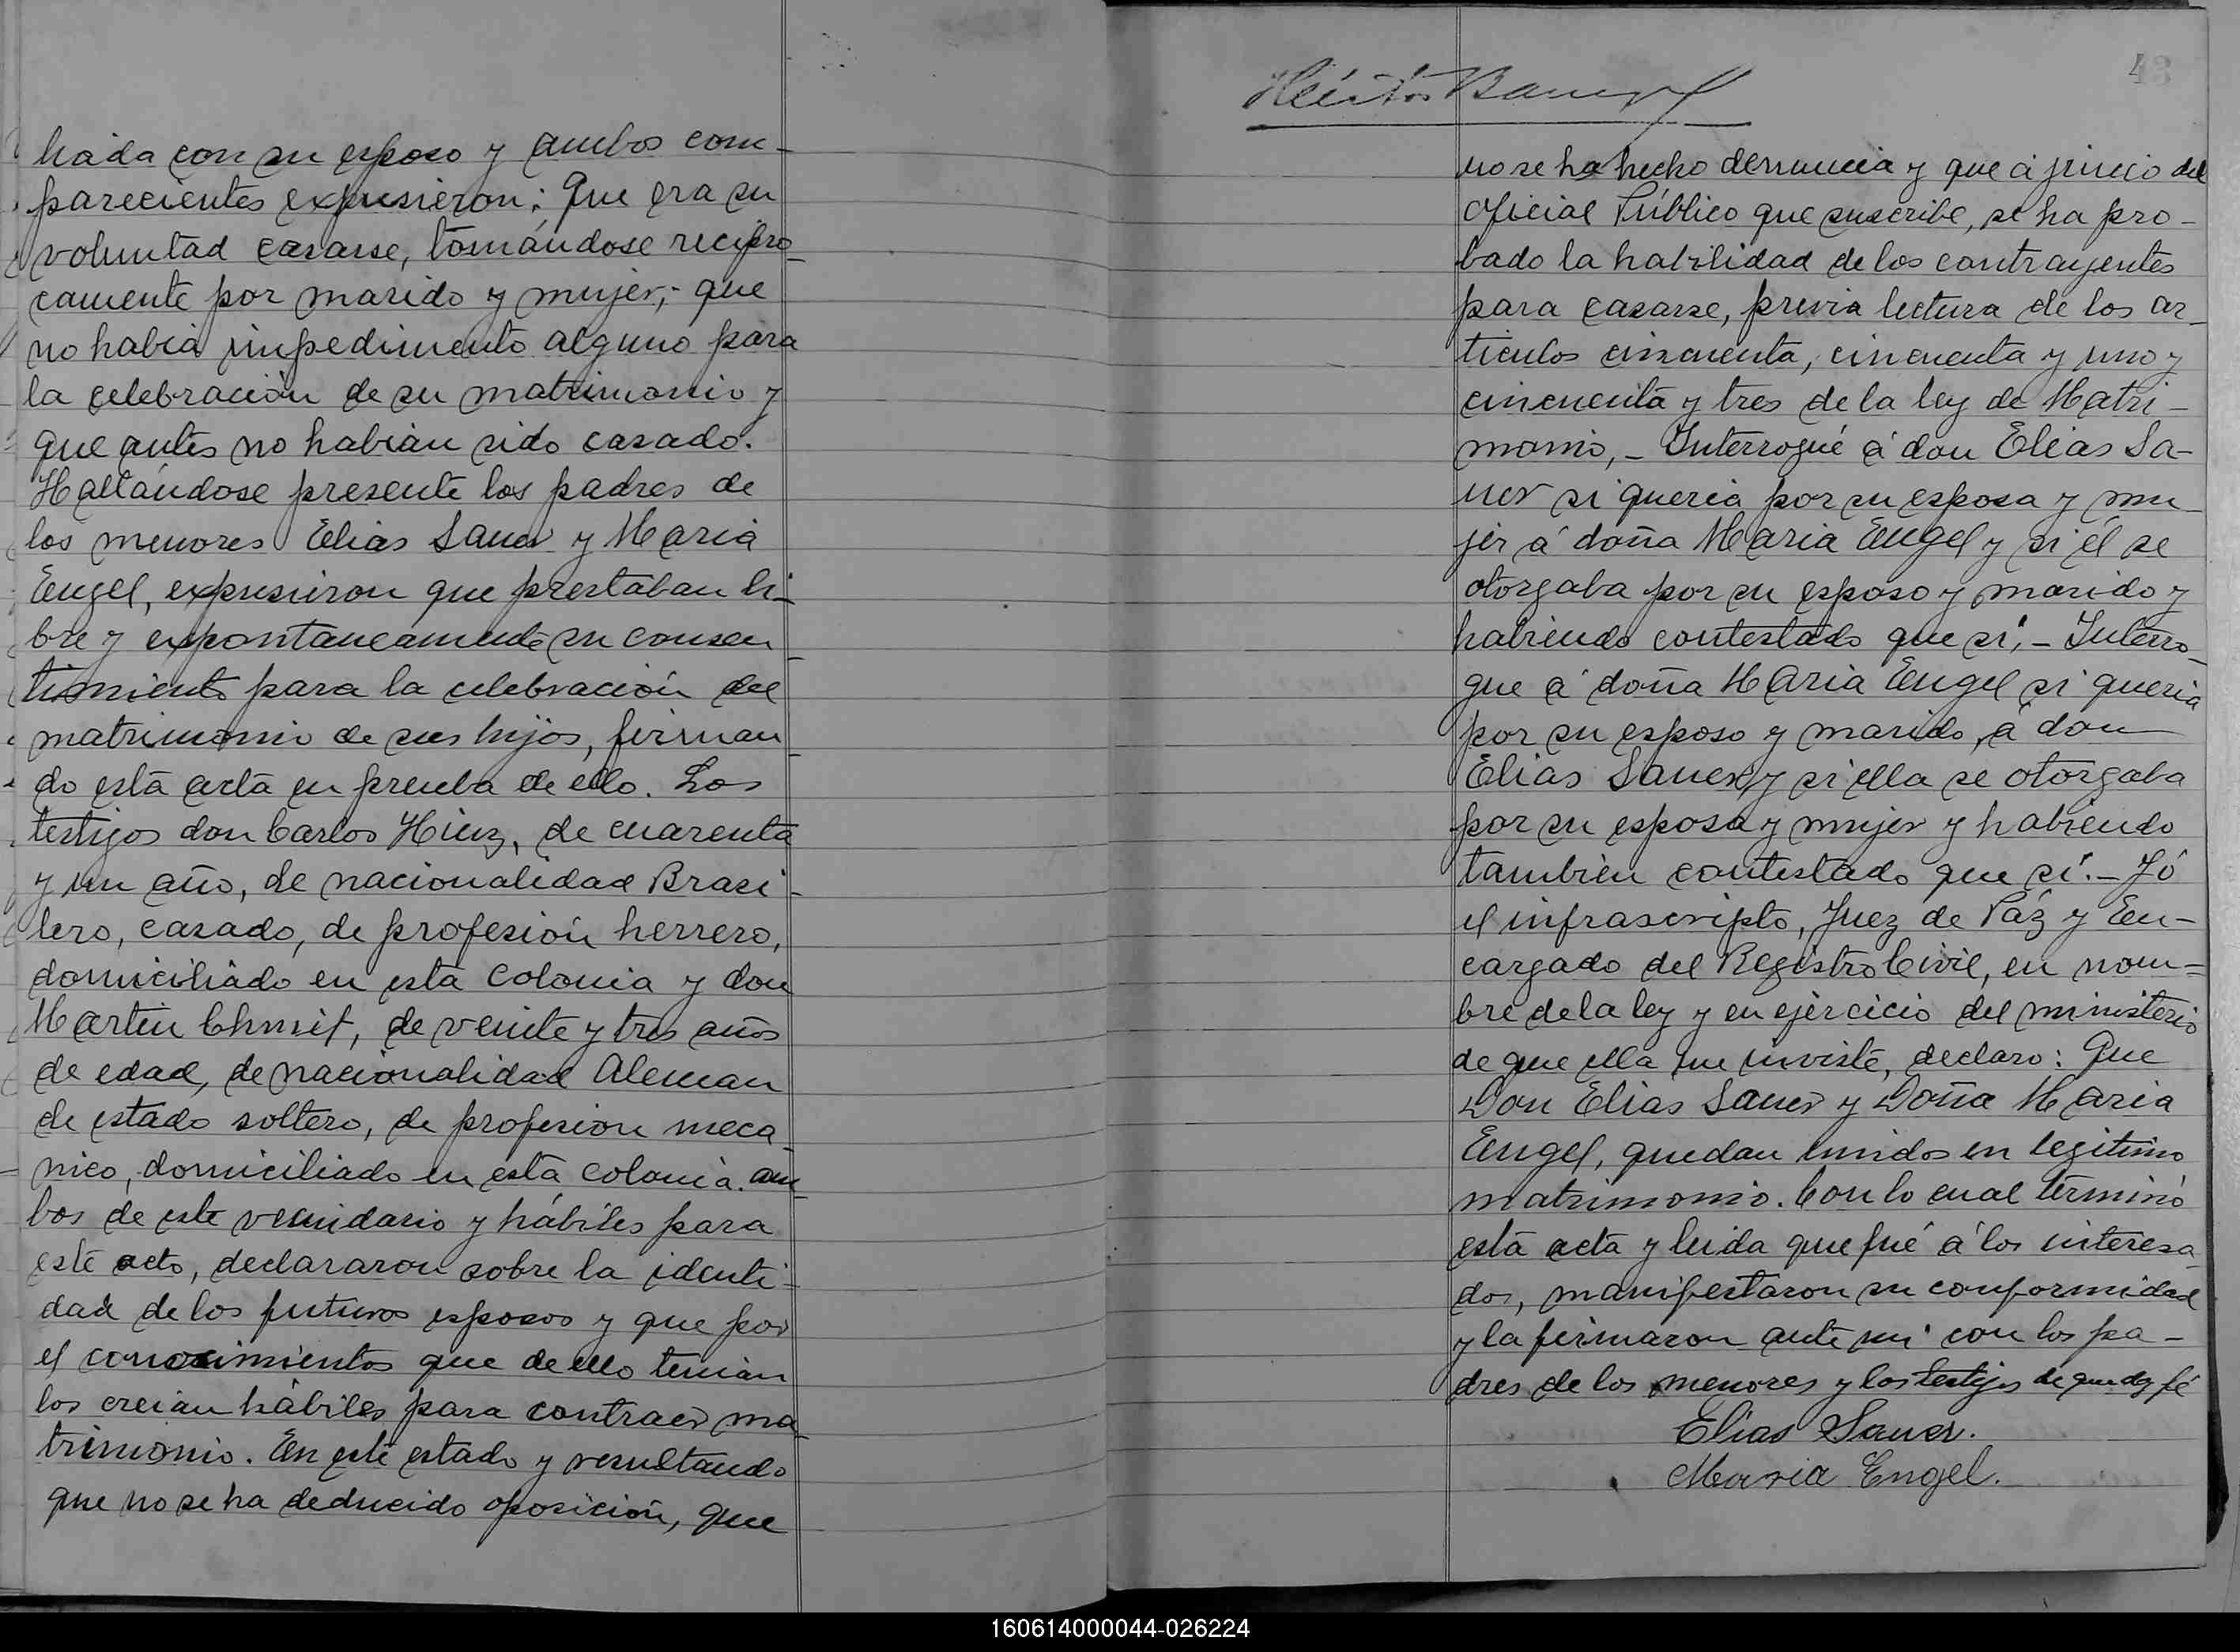 liada con su esposo y ambos com-
parecientes expusieron: Que era su
voluntad casarse, tomándose recipro-
camente por marido y mujer; que
no habia impedimento alguno para
la celebración de su matrimonio y
que antes no habian sido casado.
Hallándose presente los padres de
los menores Elias Sauer y Maria
Engel, expusieron que prestaban li-
bre y expontaneamente su consen-
timiento para la celebración del
matrimonio de sus hijos, firman-
do esta acta en prueba de ello. Los
testigos don Carlos Hinz, de cuarenta
y un año, de nacionalidad Brasi-
lero, casado, de profesión herrero,
domiciliado en esta Colonia y don
Martin Chmit, de veinte y tres años
de edad, de nacionalidad Aleman
de estado soltero, de profesion meca-
nico, domiciliado en esta colonia. am-
bos de este vecindario y hábiles para
este acto, declararon sobre la identi-
dad de los futuros esposos y que por
el conocimientos que de ello tenian
los creian hábiles para contraer ma-
trimonio. En este estado y resultando
que no se ha deducido oposición, que
43
Héctor
no se ha hecho denuncia y que á juicio del
Oficial Público que suscribe, se ha pro-
bado la habilidad de los contrayentes
para casarse, previa lectura de los ar-
ticulos cincuenta, cincuenta y uno y
cincuenta y tres de la ley de Matri-
monio, - Interrogué á don Elias Sa-
uer si queria por su esposa y mu-
jer á doña Maria Engel y si él se
otorgaba por su esposo y marido y
habiendo contestado que si, - Interro-
gue á doña Maria Engel si queria
por su esposo y marido, á don
Elias Sauer y si ella se otorgaba
por su esposa y mujer y habiendo
tambien contestado que si. - Yó
el infrascripto, Juez de Páz y En-
cargado del Registro Civil, en nom-
bre de la ley y en ejercicio del ministerio
de que ella me inviste, declaro: Que
Don Elias Sauer y Doña Maria
Engel, quedan unidos en legitimo
matrimonio. Con lo cual terminó
esta acta y leida que fué á los interesa-
dos, manifestaron su conformidad
y la firmaron ante mi con los pa-
dres de los menores y los testigos de que doy fé
Elias Sauer.
Maria Engel.
160614000044-026224